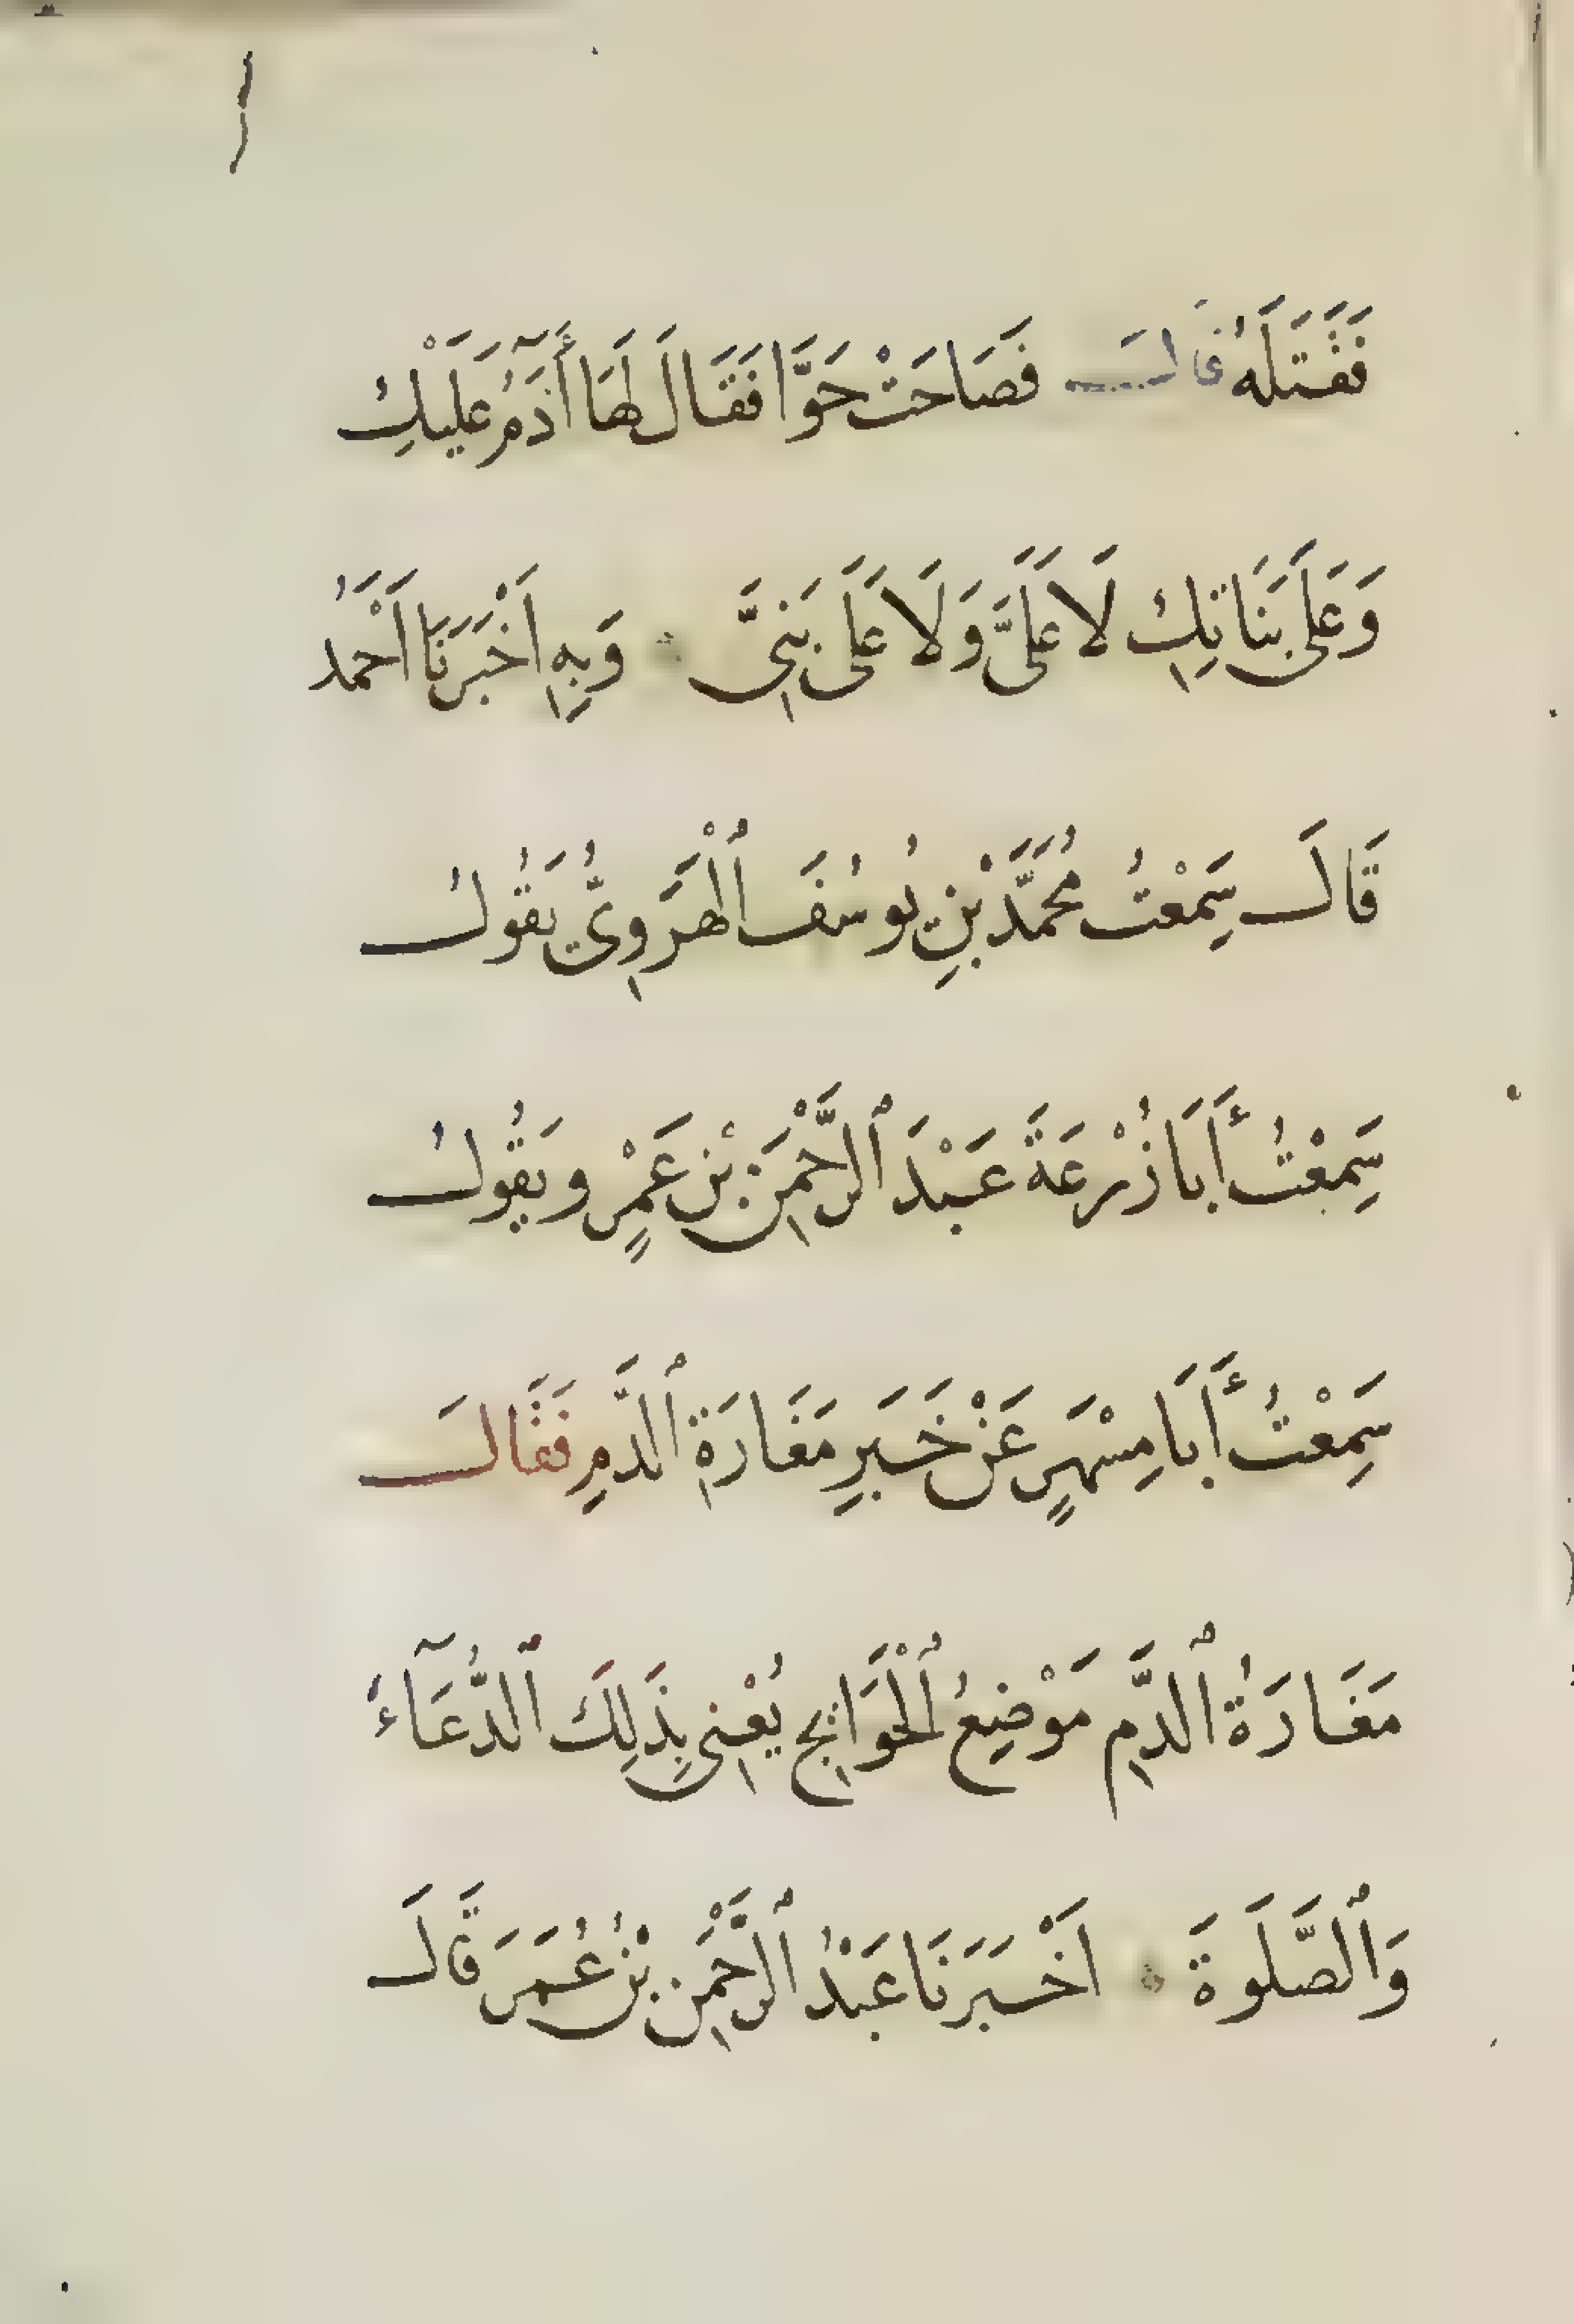 فَقَتَلَهُ قَالَ فَصَاحَتْ حَوَّا فَقَالَ لَهَا أَدَمُ عَلَيْكِ
وَعَلَى بَنَاتِكِ لَا عَلَيَّ وَلَا عَلَى بَنِيَّ ۞ وَبِهِ اَخْبَرَنَا اَحْمَدُ
قَالَ سَمِعْتُ مُحَمَّدَ بْنَ يُوسُفَ ٱلْهَرَوِيَّ يَقُولُ
سَمِعْتُ أَبَا زُرْعَةَ عَبْدَ ٱلرَّحْمَنِ بْنَ عَمْرٍو يَقُولُ
سَمِعْتُ أَبَا مِسْهَرٍ عَنْ خَبَرِ مَغَارَةِ ٱلدَّمِ فَقَالَ
مَغَارَةُ ٱلدَّمِ مَوْضِعُ ٱلْحَوَائِجِ يُعْنِي بِذَلِكَ ٱلدُّعَآءَ
وَٱلصَّلَوةَ ۞ اَخْبَرَنَا عَبْدُ ٱلرَّحْمَنِ بْنُ عُمَرَ قَالَ